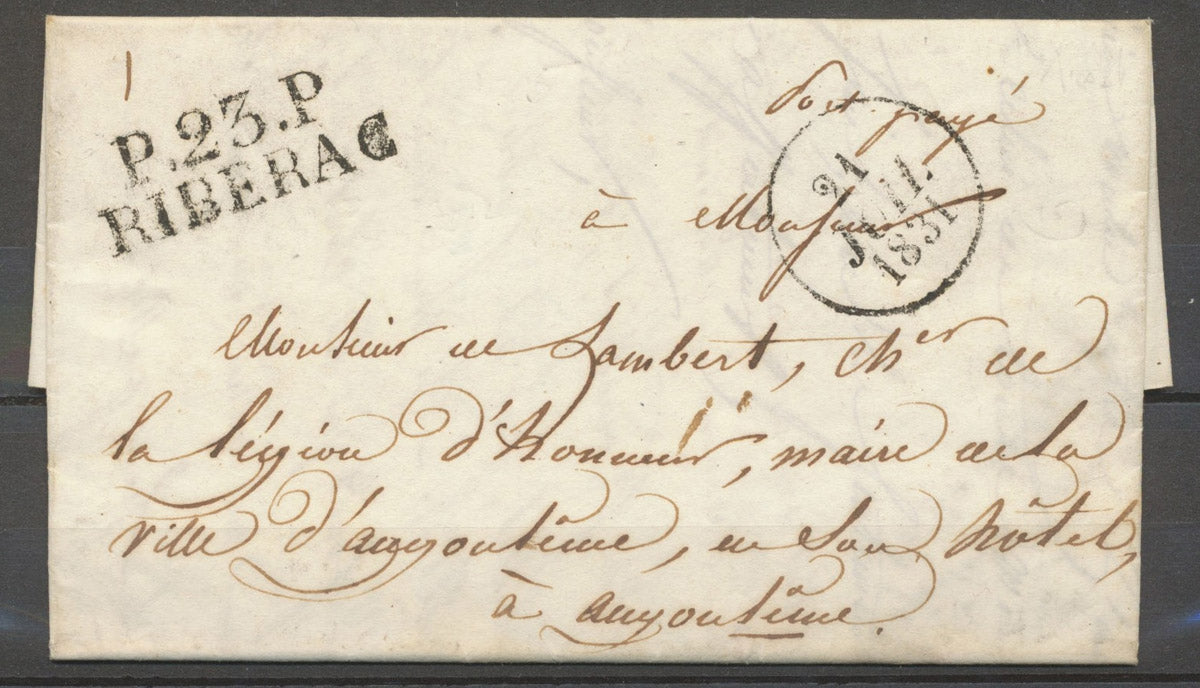 P.23.P
RIBERAC
Port payé
21
JUIL.
1831
à Monsieur
Monsieur de Lambert, Cher de
la légion d'honneur, maire de la
ville d'angoulême, en son hôtel,
à angoulême.